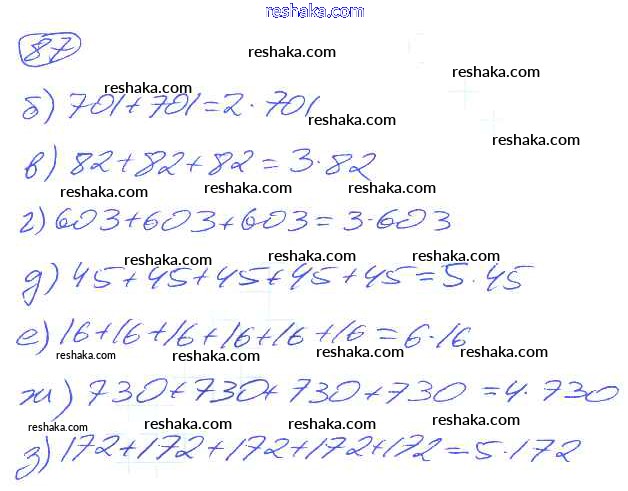 reshaka.com
87
reshaka.com
reshaka.com
reshaka.com
б) 701+701=2·701
reshaka.com
reshaka.com
в) 82+82+82=3·82
reshaka.com
reshaka.com
reshaka.com
г) 603+603+603=3·603
reshaka.com
reshaka.com
reshaka.com
д) 45+45+45+45+45=5·45
reshaka.com
reshaka.com
reshaka.com
е) 16+16+16+16+16+16=6·16
reshaka.com
reshaka.com
reshaka.com
ж) 730+730+730+730=4·730
reshaka.com
reshaka.com
reshaka.com
з) 172+172+172+172+172=5·172
reshaka.com
reshaka.com
reshaka.com